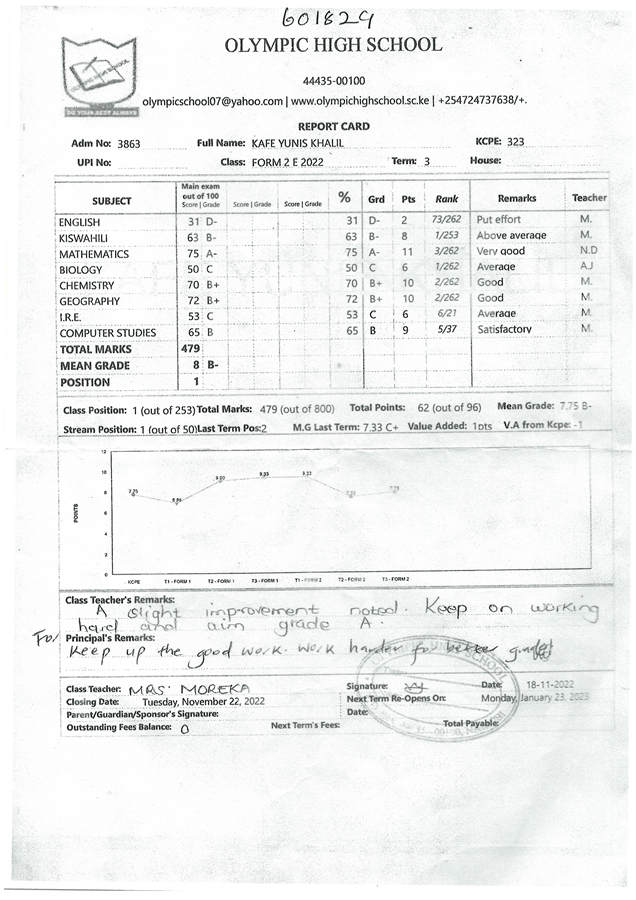 601829
OLYMPIC HIGH SCHOOL
44435-00100
olympicschool07@yahoo.com | www.olympichighschool.sc.ke | +254724737638/+.
OLYMPIC HIGH SCHOOL
DO YOUR BEST ALWAYS
REPORT CARD
Adm No: 3863 Full Name: KAFE YUNIS KHALIL KCPE: 323
UPI No: Class: FORM 2 E 2022 Term: 3 House:
SUBJECT Main exam out of 100 Score | Grade Score | Grade Score | Grade % Grd Pts Rank Remarks Teacher
ENGLISH 31 D- 31 D- 2 73/262 Put effort M.
KISWAHILI 63 B- 63 B- 8 1/253 Above average M.
MATHEMATICS 75 A- 75 A- 11 3/262 Very good N.D
BIOLOGY 50 C 50 C 6 1/262 Average AJ
CHEMISTRY 70 B+ 70 B+ 10 2/262 Good M.
GEOGRAPHY 72 B+ 72 B+ 10 2/262 Good M.
I.R.E. 53 C 53 C 6 6/21 Average M.
COMPUTER STUDIES 65 B 65 B 9 5/37 Satisfactory M.
TOTAL MARKS 479
MEAN GRADE 8 B-
POSITION 1
Class Position: 1 (out of 253) Total Marks: 479 (out of 800) Total Points: 62 (out of 96) Mean Grade: 7.75 B-
Stream Position: 1 (out of 50) Last Term Pos: 2 M.G Last Term: 7.33 C+ Value Added: 1pts V.A from Kcpe: -1
12
10
8
6
4
2
0
POINTS
9.00 9.33 9.33
KCPE T1 - FORM 1 T2 - FORM 1 T3 - FORM 1 T1 - FORM 2 T2 - FORM 2 T3 - FORM 2
Class Teacher's Remarks:
A slight improvement noted. Keep on working
hard and aim grade A.
For Principal's Remarks:
Keep up the good work. Work harder for better grades
Class Teacher: MRS. MOREKA Signature: Date: 18-11-2022
Closing Date: Tuesday, November 22, 2022 Next Term Re-Opens On: Monday, January 23, 2023
Parent/Guardian/Sponsor's Signature: Date:
Outstanding Fees Balance: 0 Next Term's Fees: Total Payable: